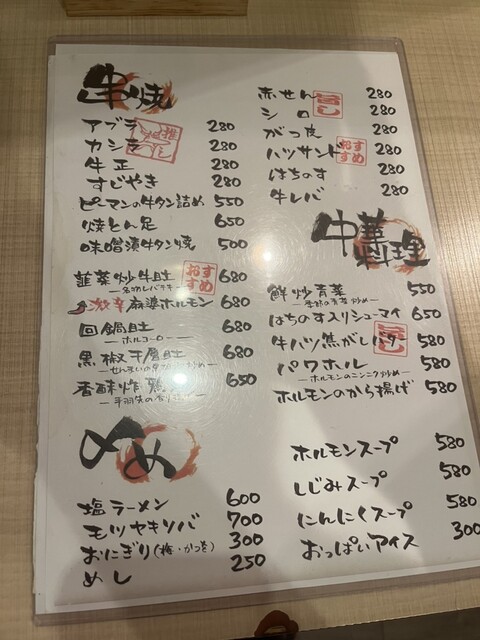 串焼
アブラ 280
カシラ 280
牛正 280
すじやき 280
ピーマンの牛タン詰め 550
焼とん足 650
味噌漬牛タン焼 500
赤せん 280
シロ 280
がつ皮 280
ハツサンド おすすめ 280
はちのす 280
牛レバ 280
韮菜炒牛肚 おすすめ 680
激辛麻婆ホルモン 680
回鍋肚 680
ーホルコーローー
黒椒千層肚 680
香酥炸 650
中華料理
鮮炒青菜 550
ー季節の青菜炒めー
はちのす入りシューマイ 650
牛ハツ焦がしバター 580
パワホル 580
ーホルモンのニンニク炒めー
ホルモンのから揚げ 580
〆め
塩ラーメン 600
モツヤキソバ 700
おにぎり(梅・かつを) 300
めし 250
ホルモンスープ 580
しじみスープ 580
にんにくスープ 580
おっぱいアイス 300